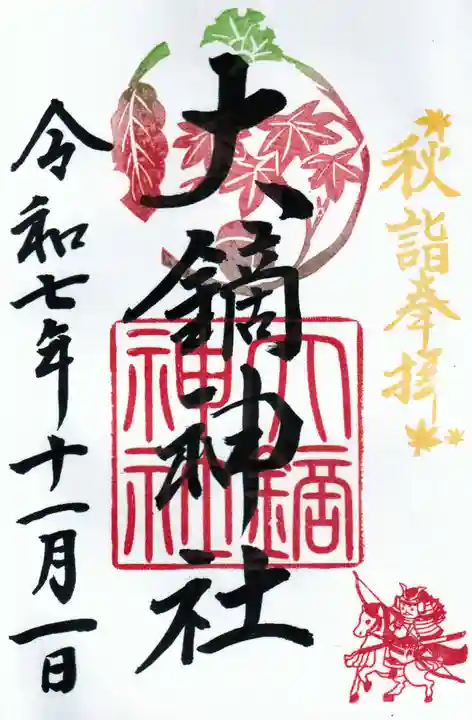 秋詣奉拝
大鏑神社
大鏑
神社
令和七年十一月一日